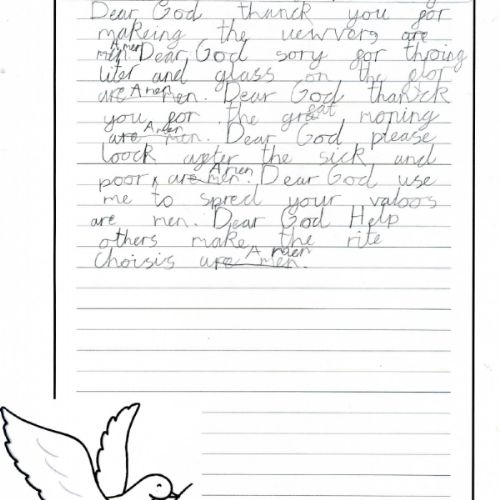 Dear God thanck you for
makeing the uewvers are
men. Amen Dear God sory for throing
liter and glass on the flor
are men. Amen Dear God thanck
you for the great moning
are men. Amen Dear God please
loock after the sick and
poor, are men. Amen Dear God use
me to spred your valoos
are men. Dear God Help
others make the rite
choisis are men. Amen